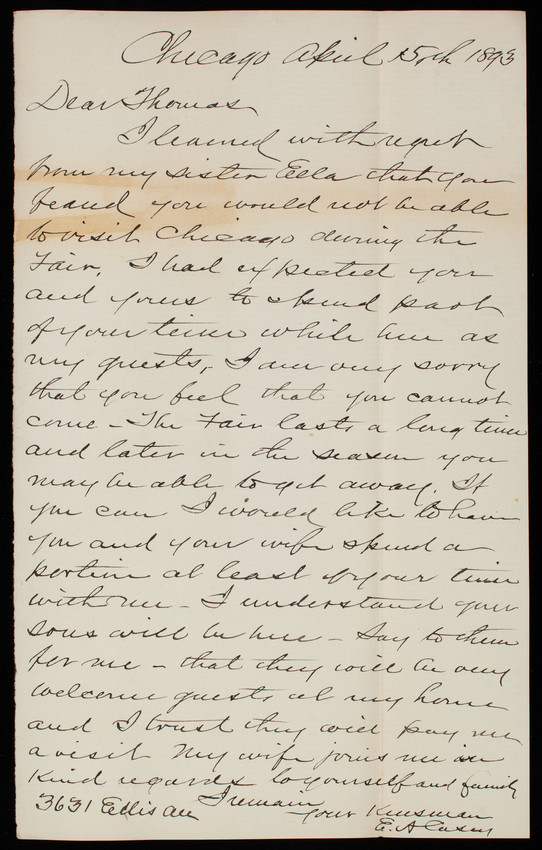 Chicago April 15th 1893
Dear Thomas
I learned with regret
from my sister Ella that you
feared you would not be able
to visit Chicago during the
Fair. I had expected you
and yours to spend part
of your time while here as
my guests, I am very sorry
that you feel that you cannot
come - The Fair lasts a long time
and later in the season you
may be able to get away. If
you can I would like to have
you and your wife spend a
portion at least of your time
with me - I understand your
sons will be here - Say to them
for me - that they will be very
welcome guests at my home
and I trust they will pay me
a visit My wife joins me in
Kind regards to yourself and family
I remain
3631 Ellis Ave your Kinsman
E. A Casey